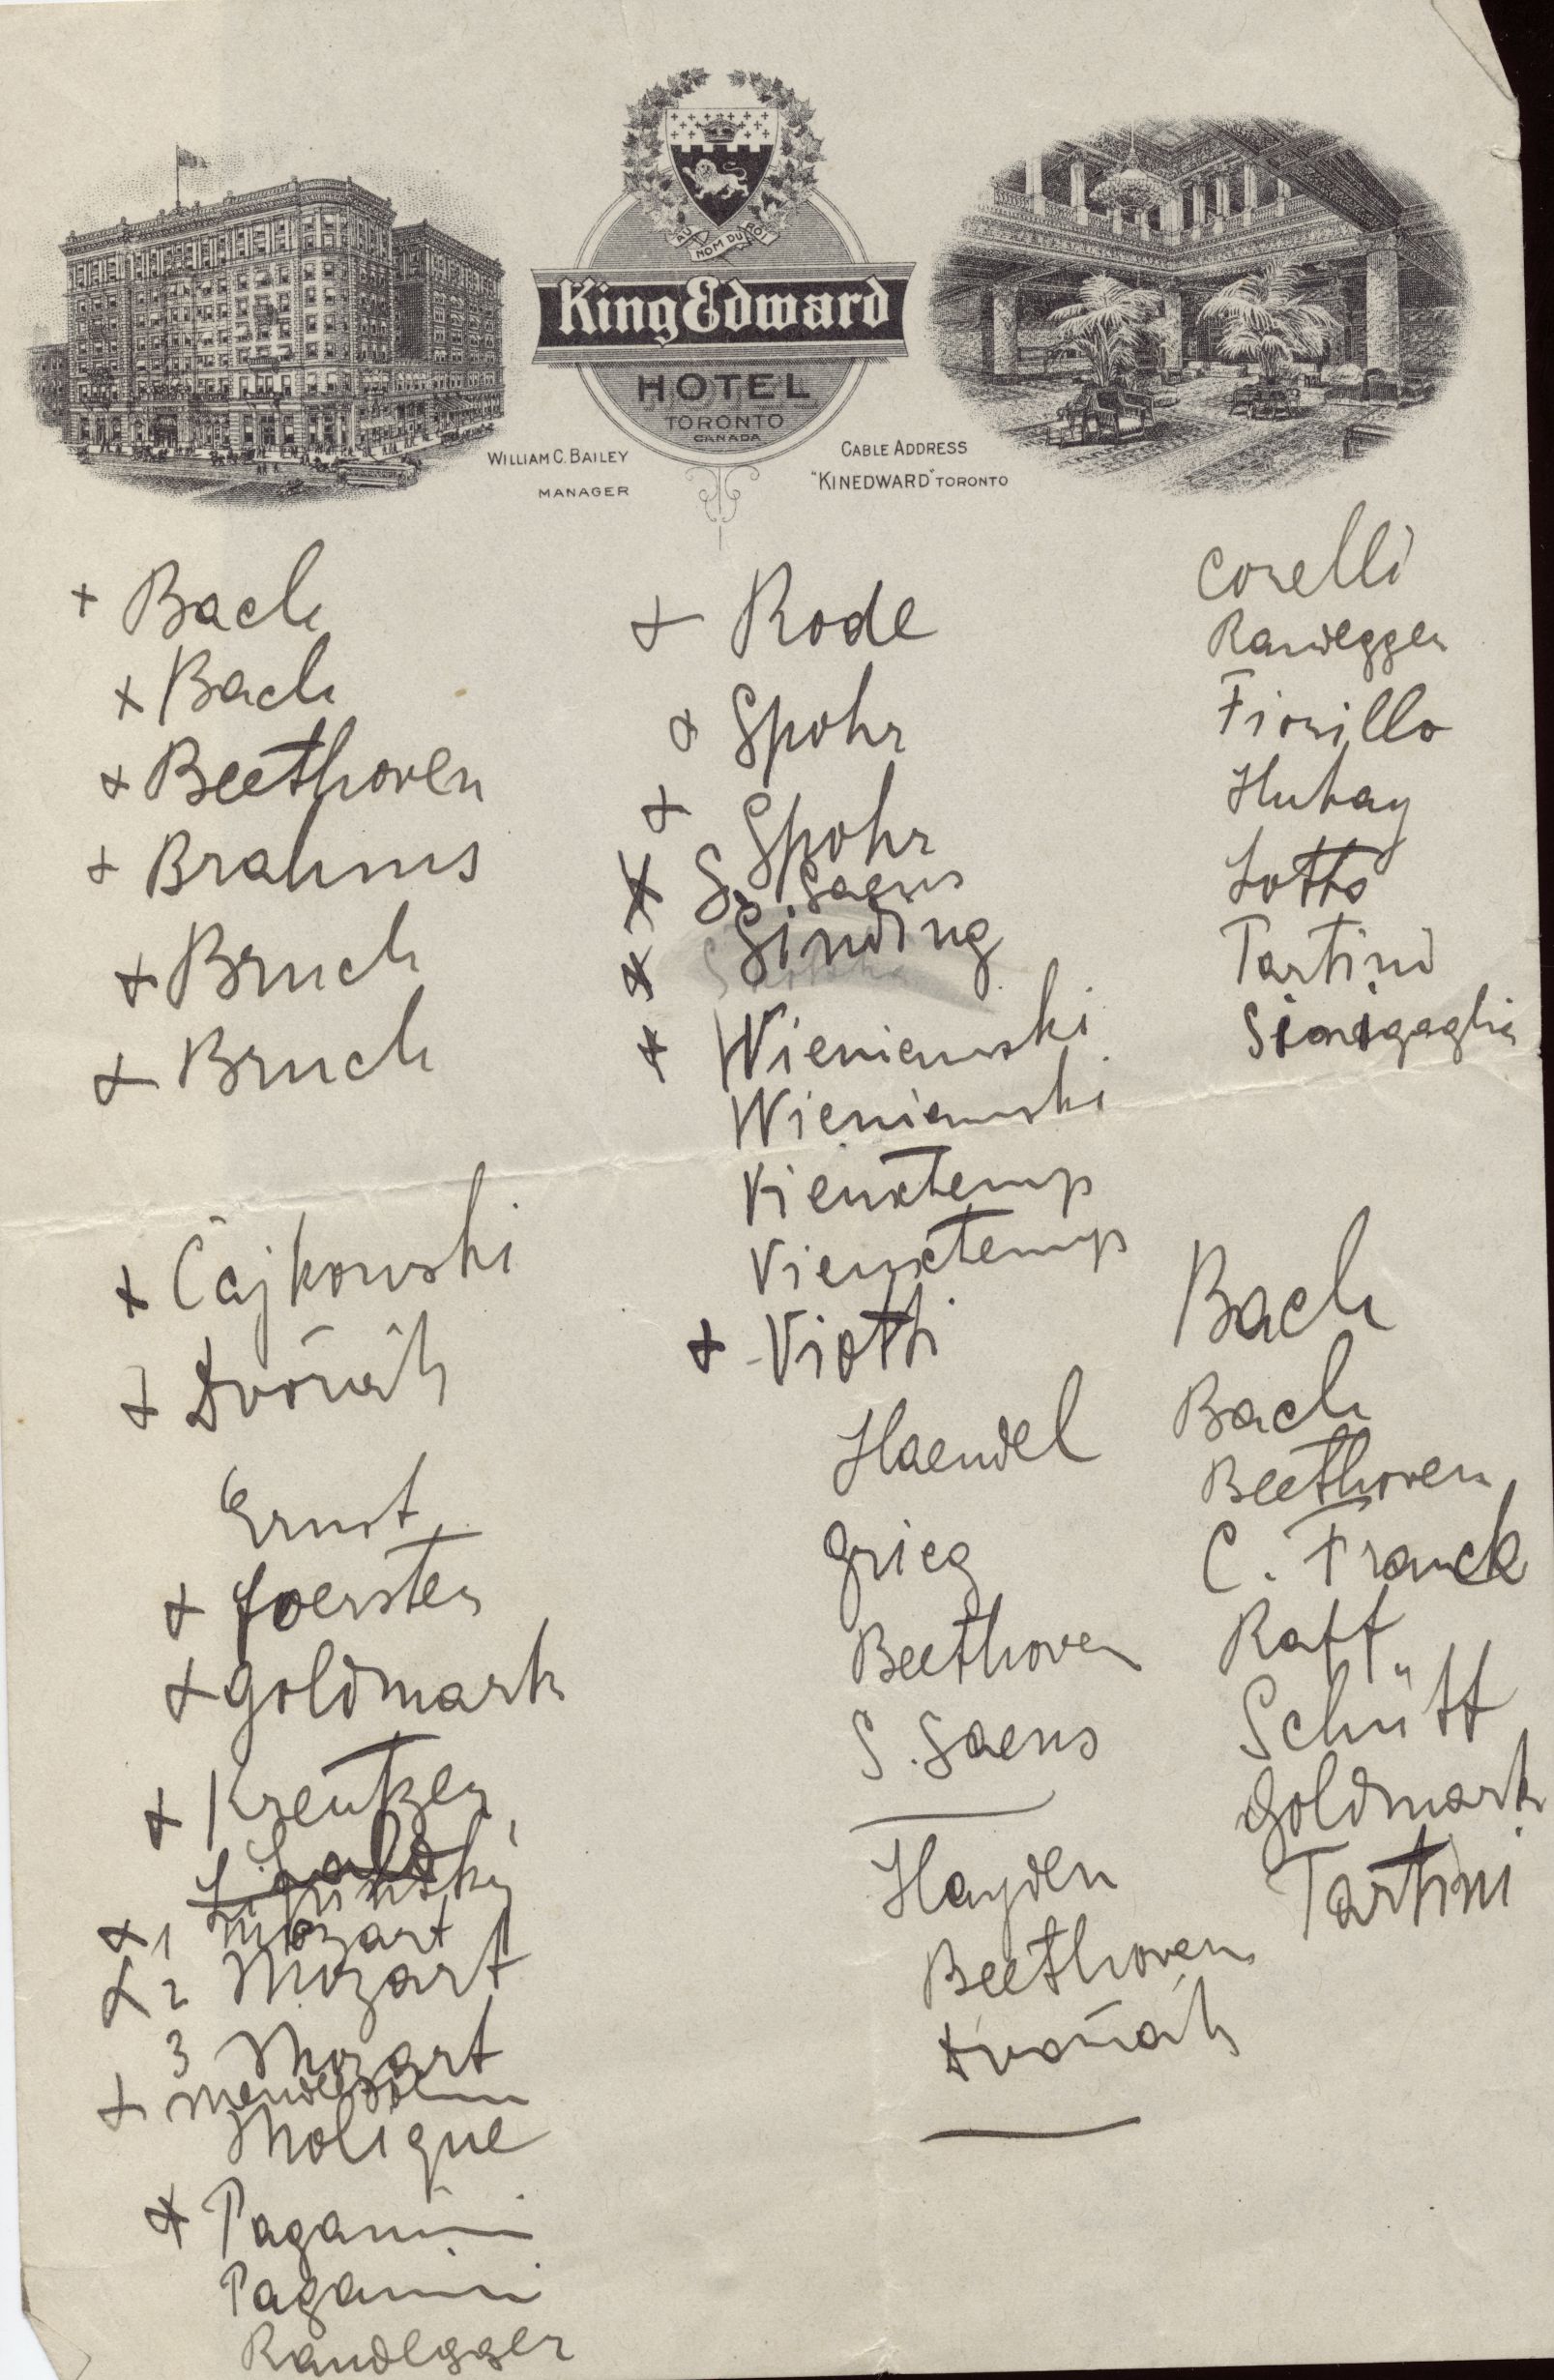 AU NOM DU ROI
King Edward
HOTEL
TORONTO
CANADA
WILLIAM C. BAILEY
MANAGER
CABLE ADDRESS
"KINEDWARD" TORONTO
+ Bach
+ Bach
+ Beethoven
+ Brahms
+ Bruch
+ Bruch
+ Čajkowski
+ Dvořák
Ernst
+ Foerster
+ Goldmark
+ Kreutzer
Lalo
Lipinský
+ 1 Mozart
+ 2 Mozart
3 Mozart
+ Mendelsohn
Molique
+ Paganini
Paganini
Randegger
+ Rode
+ Spohr
+ Spohr
+ S. Saens
+ Sinding
+ Wieniawski
Wieniawski
Vieuxtemp
Vieuxtemps
+ - Viotti
Haendel
Grieg
Beethoven
S. Saens
Hayden
Beethoven
Dvořák
Corelli
Randegger
Fiorillo
Hubay
Lotto
Tartini
Sinigaglia
Bach
Bach
Beethoven
C. Franck
Raff
Schütt
Goldmark
Tartini